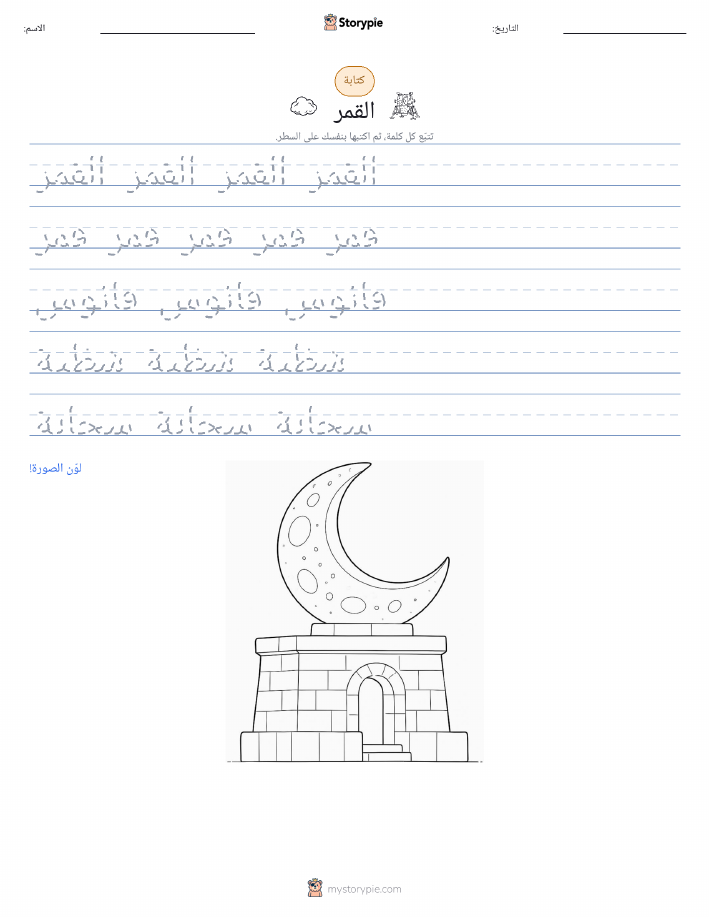 الاسم:
Storypie
التاريخ:
كتابة
القمر
تتبّع كل كلمة، ثم اكتبها بنفسك على السطر.
القمر القمر القمر القمر
قمر قمر قمر قمر قمر
فانوس فانوس فانوس
سحابة سحابة سحابة
لوّن الصورة!
mystorypie.com